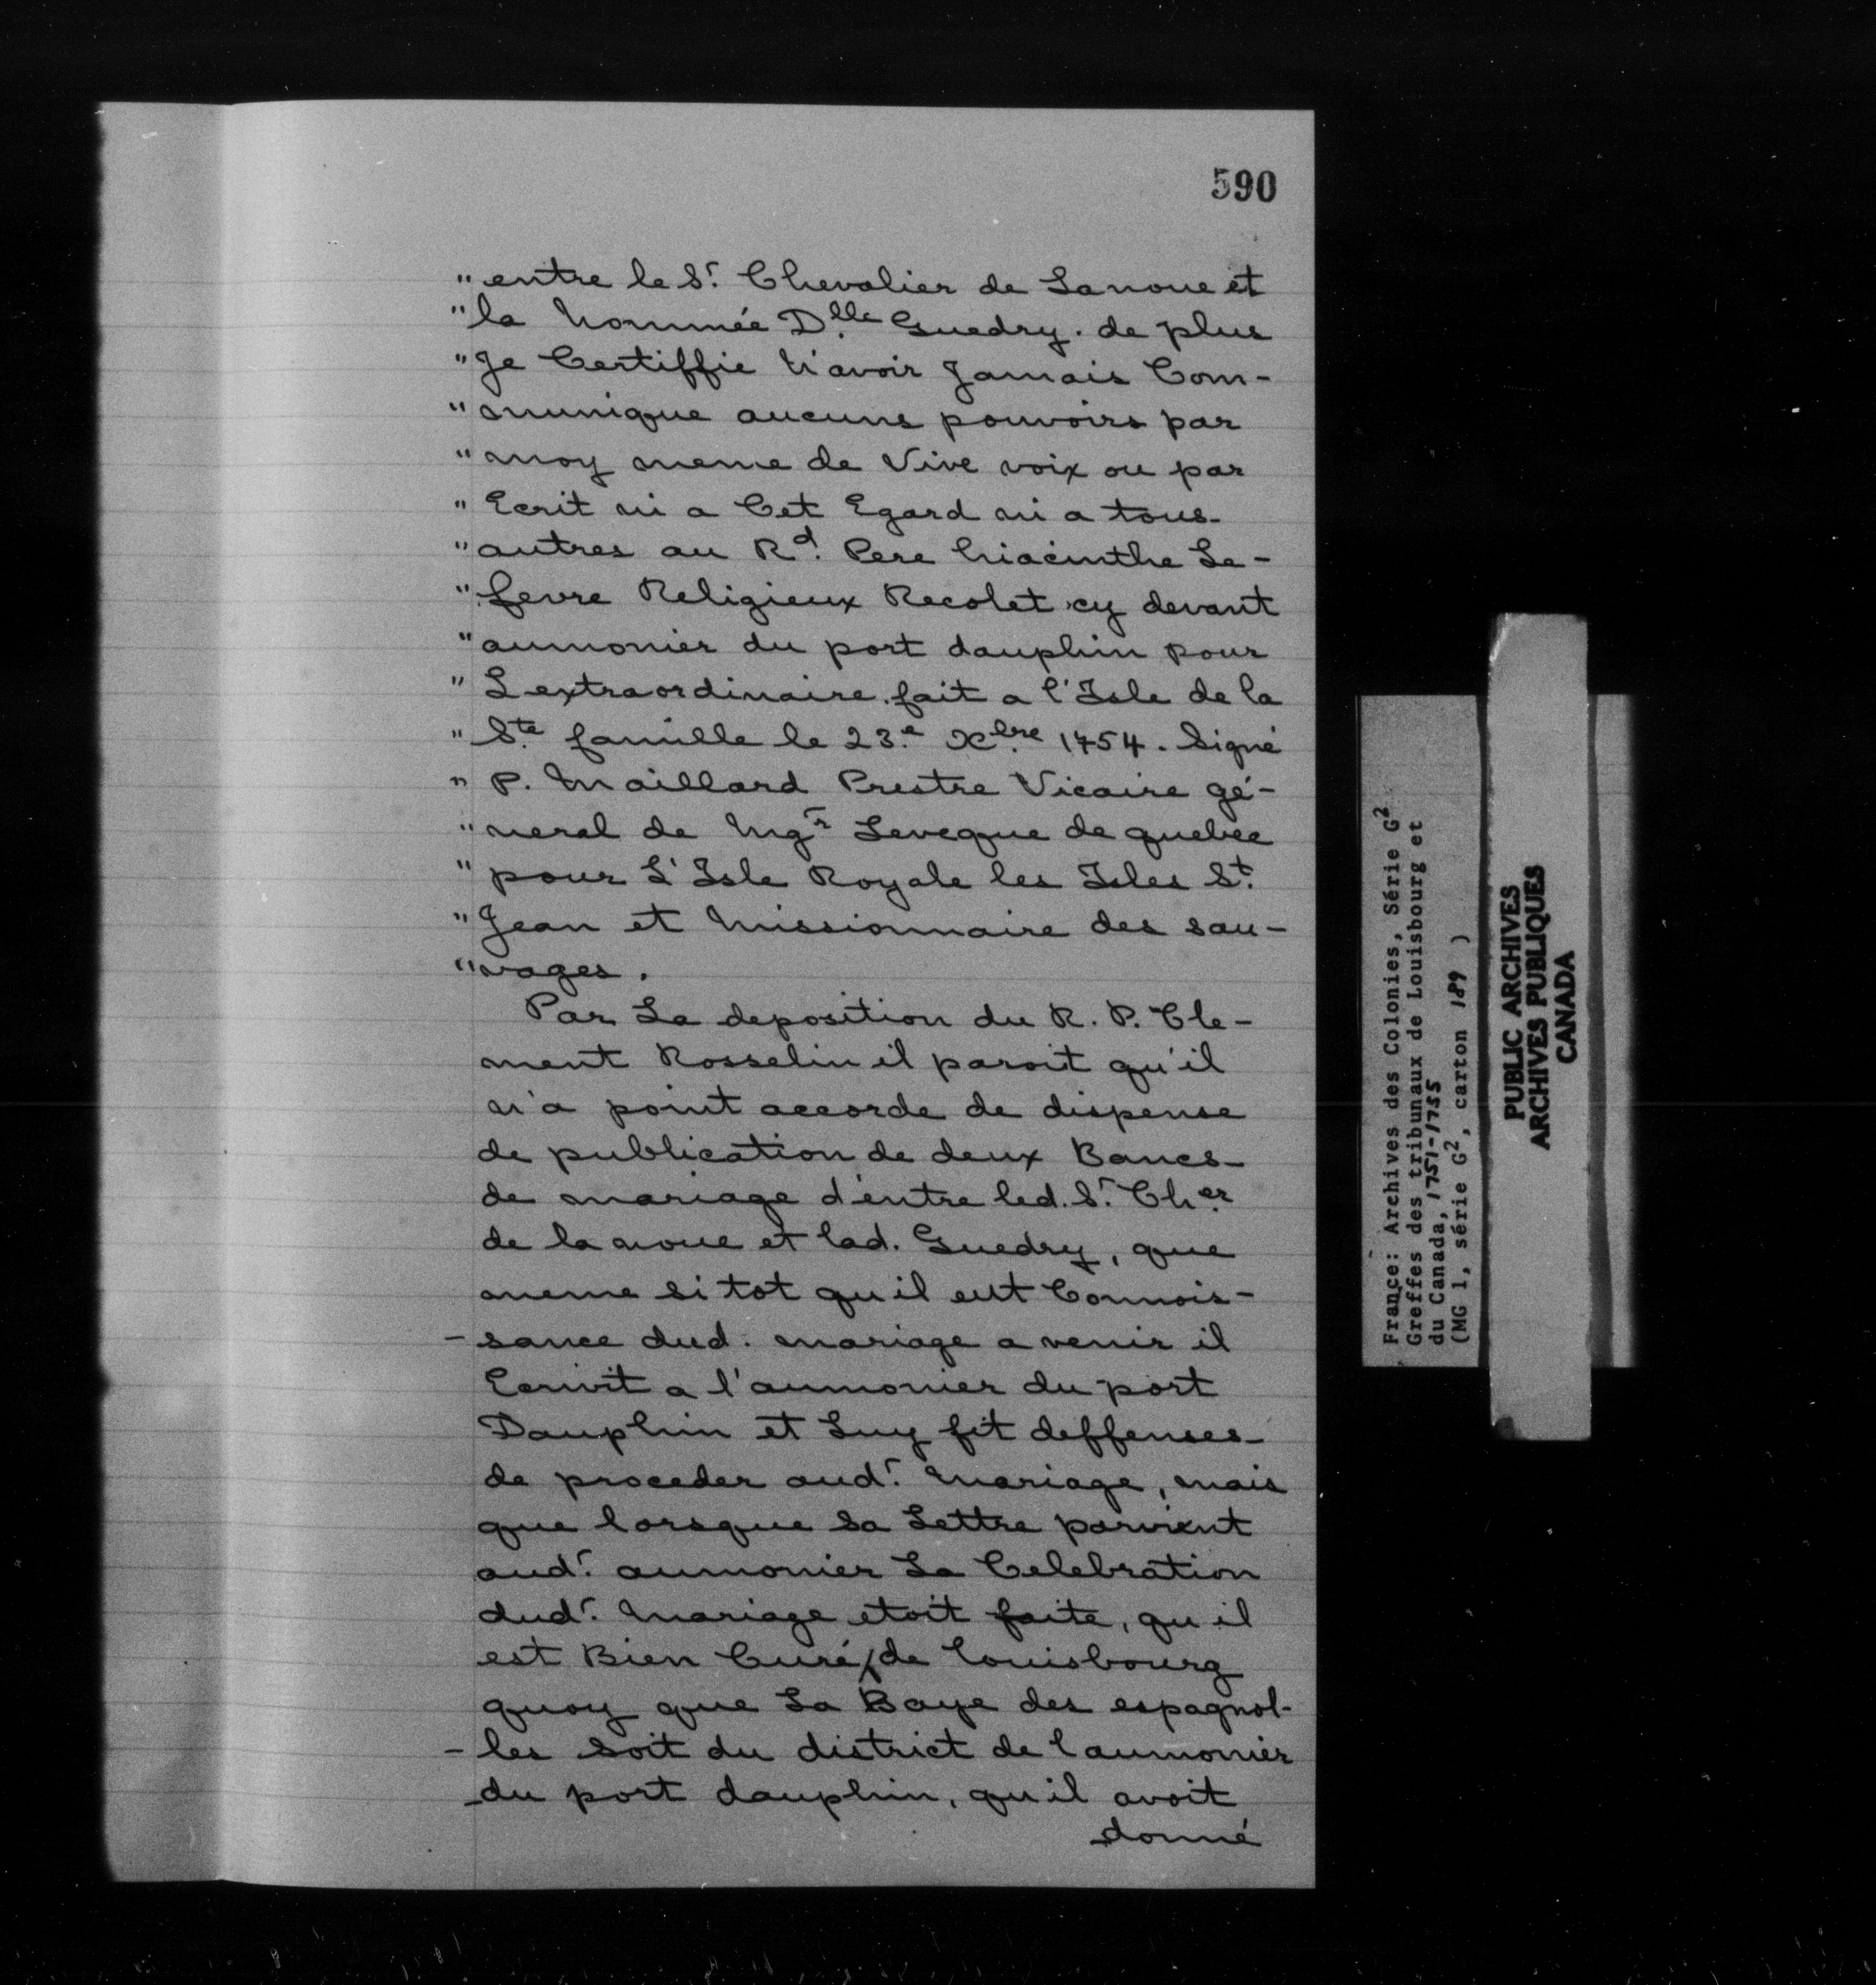 590
" entre le Sr. Chevalier de Lanoue et
" la Nommée Dlle Guedry. de plus
" Je Certiffie N'avoir Jamais Com-
" munique aucuns pouvoirs par
" moy meme de Vive voix ou par
" Ecrit ni a Cet Egard ni a tous
" autres au Rd. Pere hiacinthe Le-
" fevre Religieux Recolet cy devant
" aumonier du port dauphin pour
" L'extraordinaire fait a l'Isle de la
" Ste famille le 23.e Xbre 1754. Signé
" P. Maillard Prestre Vicaire gé-
" neral de Mgr Leveque de quebec
" pour L'Isle Royale les Isles St.
" Jean et Missionnaire des sau-
" vages.
Par La deposition du R. P. Cle-
ment Rosselin il paroit qu'il
n'a point accorde de dispense
de publication de deux Bancs
de mariage d'entre led. Sr. Cher
de la noue et lad. Guedry, que
meme si tot qu il eut Connois-
- sance dud. mariage a venir il
Ecrivit a l'aumonier du port
Dauphin et Luy fit deffenses
de proceder audr. Mariage, mais
que lorsque Sa Lettre parvient
audr. aumonier La Celebration
dudr. Mariage etoit faite, qu il
est Bien Curé de Louisbourg
quoy que La Baye des espagnol-
- les soit du district de l aumonier
du port dauphin, qu il avoit
donné
France: Archives des Colonies, Série G2
Greffes des tribunaux de Louisbourg et
du Canada, 1751-1755
(MG 1, série G2, carton 189 )
PUBLIC ARCHIVES
ARCHIVES PUBLIQUES
CANADA